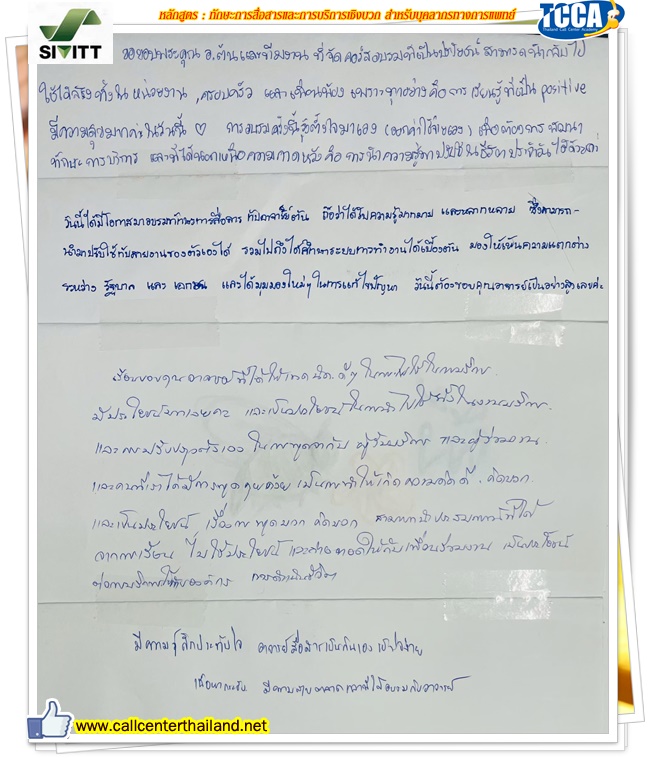 หลักสูตร : ทักษะการสื่อสารและการบริการเชิงบวก สำหรับบุคลากรทางการแพทย์
SiVITT
TCCA
Thailand Call Center Academy
ขอขอบพระคุณ อ.ต้นและทีมงาน ที่จัดคอร์สอบรมที่เป็นประโยชน์ สามารถนำกลับไป
ใช้ได้จริงทั้งในหน่วยงาน, ครอบครัว และเพื่อนพ้อง เพราะทุกอย่างคือการเรียนรู้ที่เป็น positive
มีความสุขมากค่ะในวันนี้ ♡ การอบรมครั้งนี้ตั้งใจมาเอง (ออกค่าใช้จ่ายเอง) เพื่อต้องการพัฒนา
ทักษะการบริการ และที่ได้นอกเหนือความคาดหวังคือ การนำความรู้มาปรับใช้ในชีวิตประจำวันได้ด้วยค่ะ
วันนี้ได้มีโอกาสมาอบรมทักษะการสื่อสาร กับอาจารย์ต้น ถือว่าได้รับความรู้มากมาย และหลากหลาย ซึ่งสามารถ-
นำมาปรับใช้กับสายงานของตัวเองได้ รวมไปถึงได้ศึกษาระบบการทำงานได้เบื้องต้น มองให้เห็นความแตกต่าง
ระหว่าง รัฐบาล และ เอกชน และได้มุมมองใหม่ๆ ในการแก้ไขปัญหา วันนี้ต้องขอบคุณอาจารย์เป็นอย่างสูงเลยค่ะ
เรียนขอบคุณอาจารย์ที่ได้ให้แนวคิด ดีๆ ในการไปใช้ในการบริการ
มีประโยชน์มากเลยคะ และเป็นประโยชน์ในการนำไปใช้ทั้งในงานบริการ
และการปรับปรุงตัวเอง ในการพูดจากับ ผู้รับบริการ และผู้ร่วมงาน
และคนที่เราได้มีการพูดคุยด้วย เป็นการทำให้เกิดความคิดดี คิดบวก
และเป็นประโยชน์ เรื่องการพูดบวก คิดบวก สามารถนำประสบการณ์ที่ได้
จากการเรียน ไปใช้ประโยชน์ และถ่ายทอดให้กับเพื่อนร่วมงาน เป็นประโยชน์
ต่อการบริการให้กับองค์กร การดำเนินชีวิต
มีความรู้สึกประทับใจ อาจารย์สื่อสารเป็นกันเอง เข้าใจง่าย
มีความ
www.callcenterthailand.net